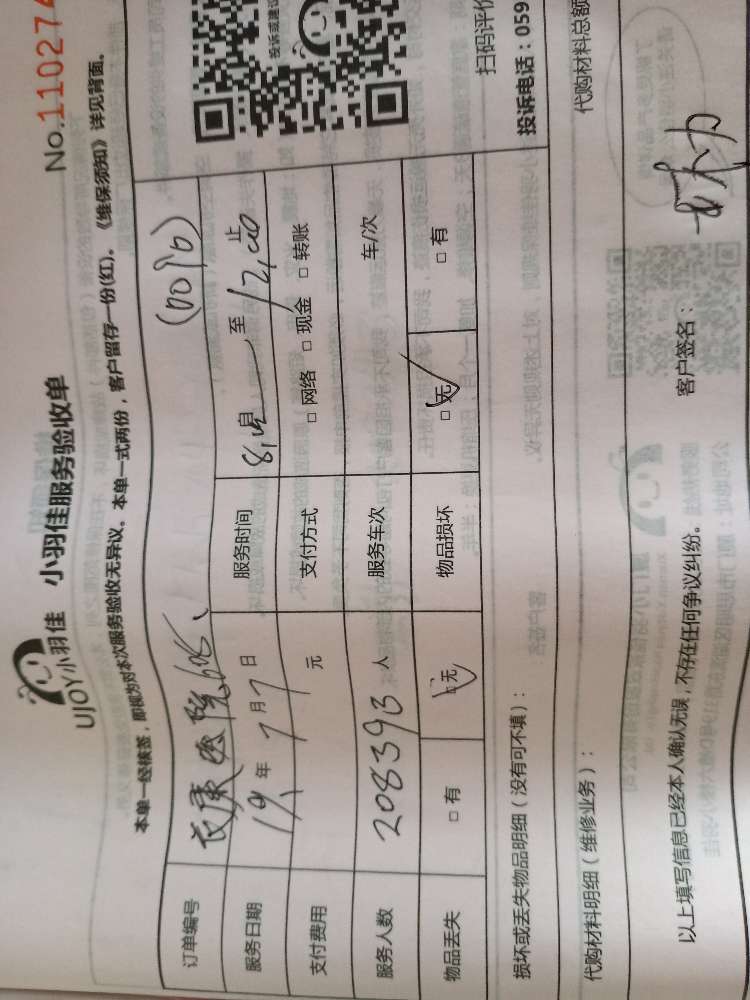 UJOY小羽佳 小羽佳服务验收单
No.110274
本单一经核签，即视为对本次服务验收无异议。本单一式两份，客户留存一份(红)。《维保须知》详见背面。
订单编号 长庚医院
服务日期 19 年 7 月 7 日 服务时间 至 12:00 止
支付费用 元 支付方式 □ 网络 □ 现金 □ 转账
服务人数 208393 人 服务车次 车/次
物品丢失 □ 有 □ 无 物品损坏 □ 无 □ 有
损坏或丢失物品明细（没有可不填）：
代购材料明细（维修业务）： 代购材料总额
以上填写信息已经本人确认无误，不存在任何争议纠纷。 客户签名：
投诉或建议
扫码评价
投诉电话：059